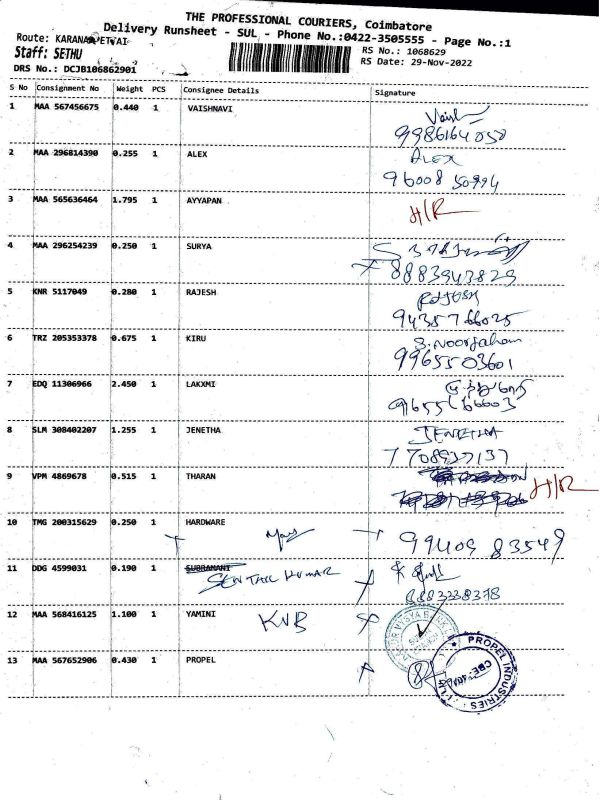 THE PROFESSIONAL COURIERS, Coimbatore
Delivery Runsheet - SUL - Phone No.:0422-3505555 - Page No.:1
Route: KARANAMPETTAI
RS No.: 1068629
Staff: SETHU
RS Date: 29-Nov-2022
DRS No.: DCJB106862901
S No Consignment No Weight PCS Consignee Details Signature
1 MAA 567456675 0.440 1 VAISHNAVI
9986164050
2 MAA 296814390 0.255 1 ALEX ALEX
96008 50994
3 MAA 565636464 1.795 1 AYYAPAN H/R
4 MAA 296254239 0.250 1 SURYA
8883943829
5 KNR 5117049 0.280 1 RAJESH RAJESH
9435766025
6 TRZ 205353378 0.675 1 KIRU S. Noorjaham
9965503601
7 EDQ 11306966 2.450 1 LAKXMI
8 SLM 308402207 1.255 1 JENETHA JENETHA
7708937137
9 VPM 4869678 0.515 1 THARAN H/R
10 TMG 200315629 0.250 1 HARDWARE 99409 83549
11 DDG 4599031 0.190 1 SUBRAMANI
SENTHIL KUMAR
8883338378
12 MAA 568416125 1.100 1 YAMINI KVB
13 MAA 567652906 0.430 1 PROPEL
PROPEL INDUSTRIES